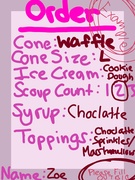 Order
Example
Cone: Waffle
Cone Size: L
Ice Cream: Cookie Dough
Scoup Count: 1 2 3
Syrup: Choclatte
Toppings: Choclatte
Sprinkles/
Marshmellow
Name: Zoe
Please Fill